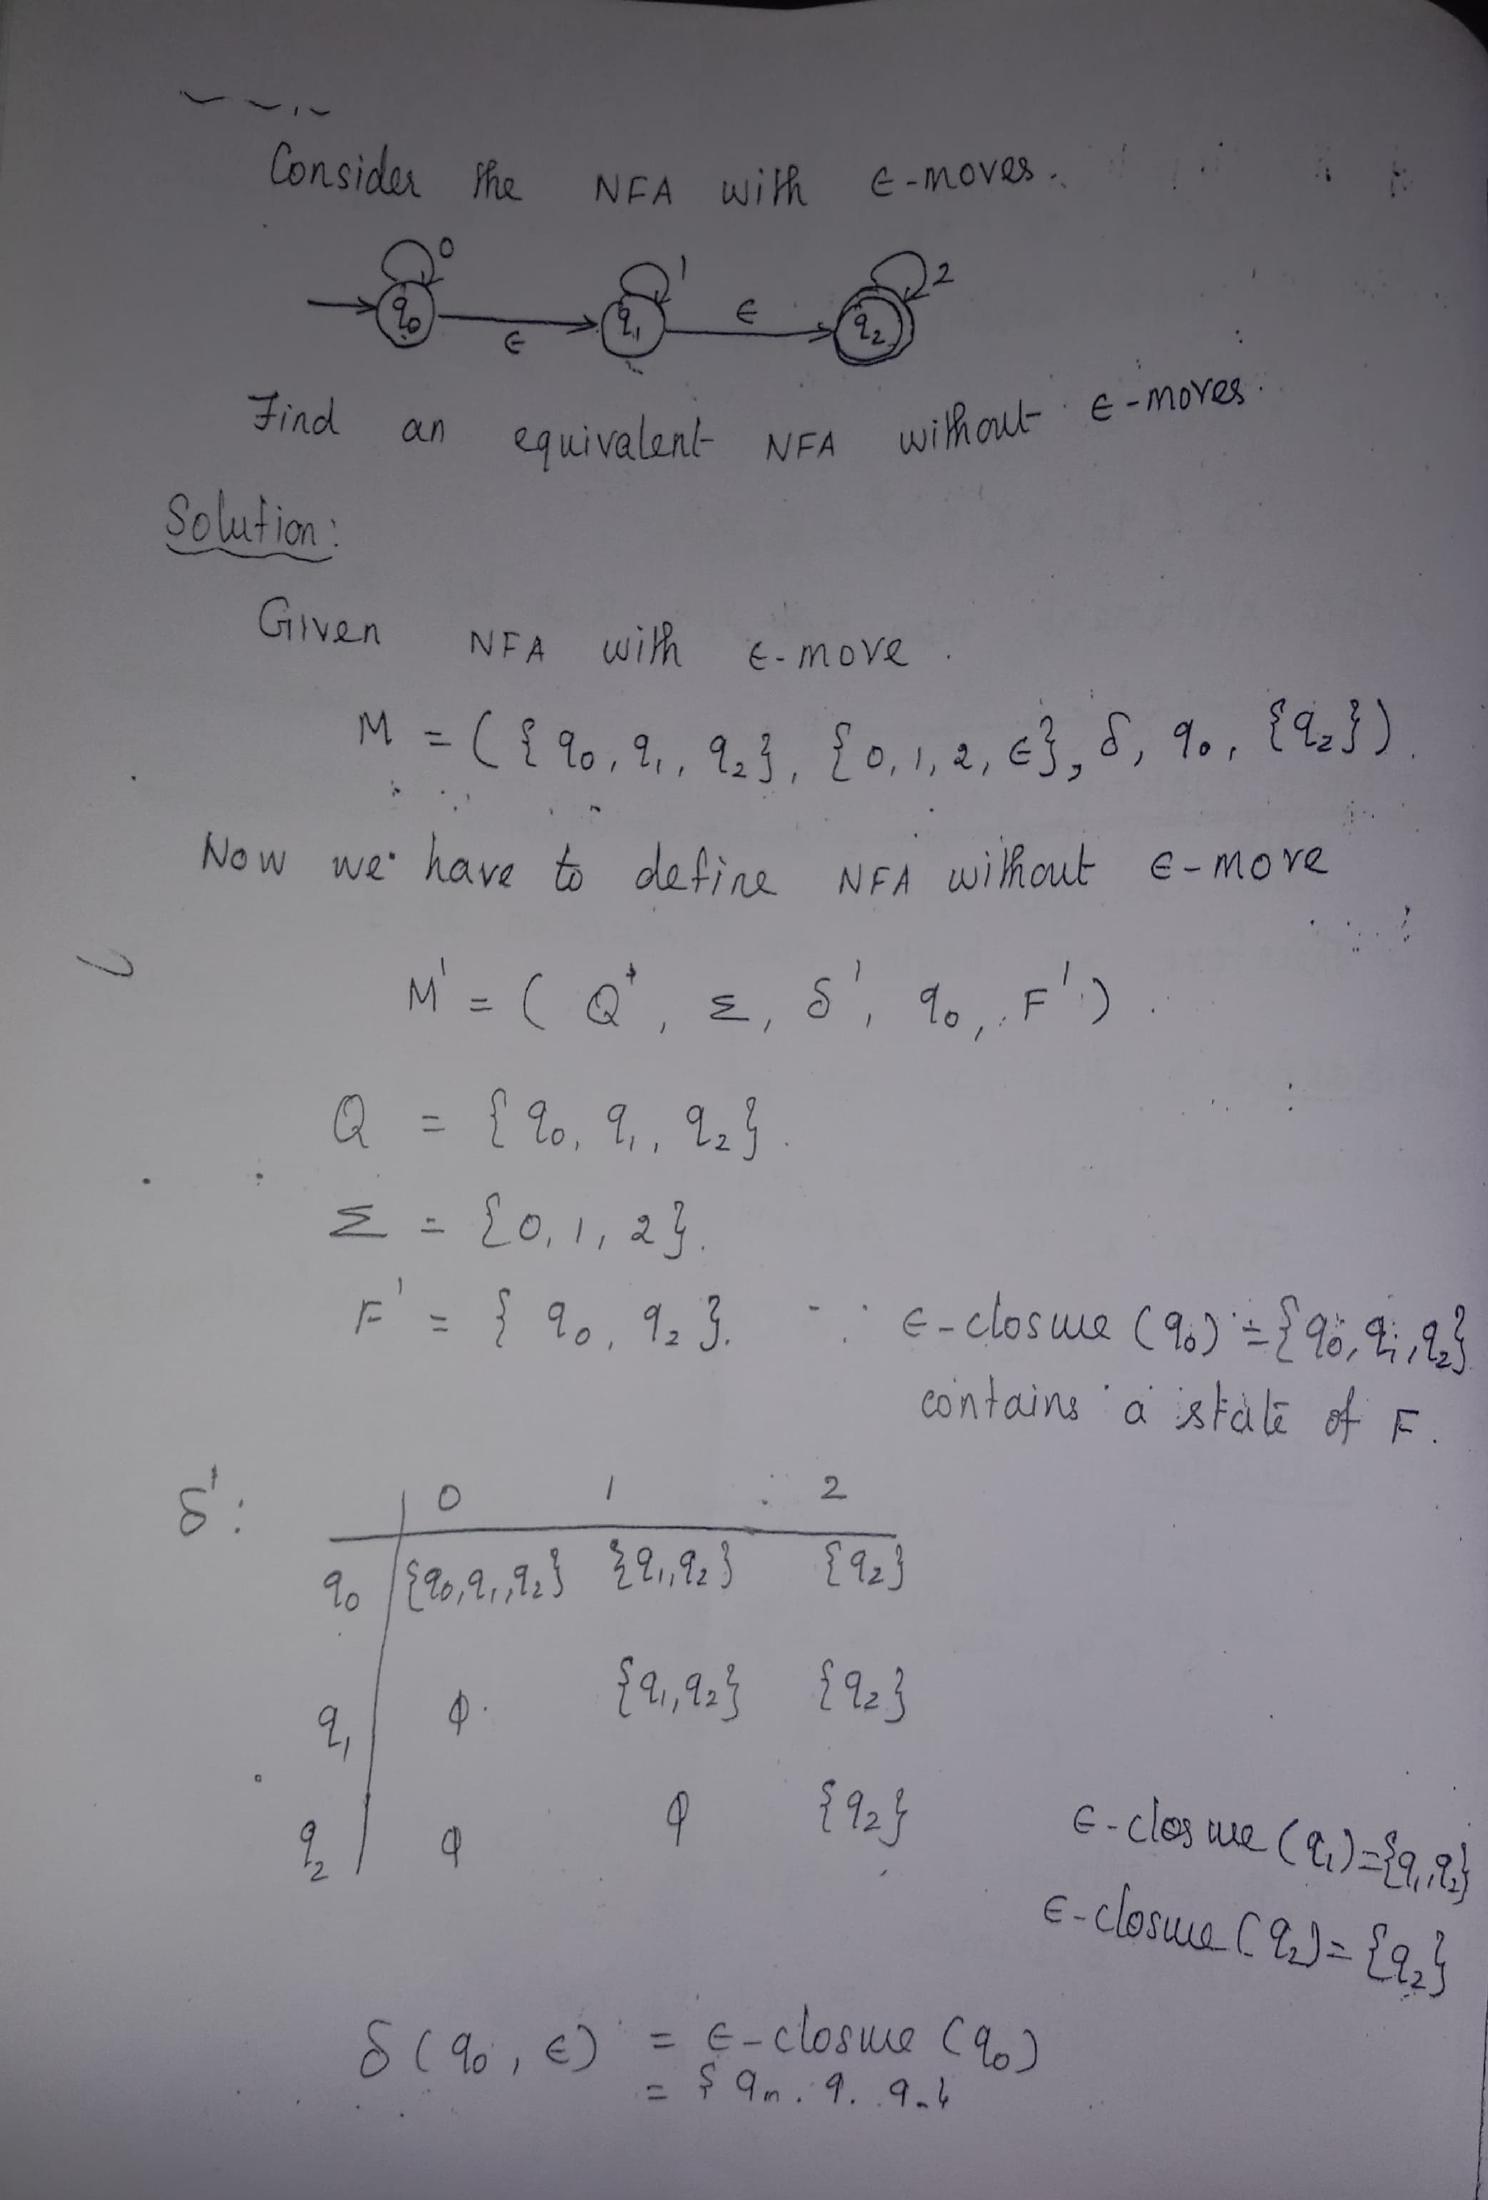 Consider the NFA with ε-moves.
0 1 2
q₀ ε q₁ ε q₂
Find an equivalent NFA without ε-moves.
Solution:
Given NFA with ε-move.
M = ({q₀, q₁, q₂}, {0, 1, 2, ε}, δ, q₀, {q₂}).
Now we have to define NFA without ε-move
M' = (Q', Σ, δ', q₀, F').
Q = {q₀, q₁, q₂}.
Σ = {0, 1, 2}.
F' = {q₀, q₂}. ∵ ε-closure (q₀) = {q₀, q₁, q₂}
contains a state of F.
δ': 0 1 2
q₀ {q₀, q₁, q₂} {q₁, q₂} {q₂}
q₁ φ {q₁, q₂} {q₂}
q₂ φ φ {q₂}
ε-closure (q₁) = {q₁, q₂}
ε-closure (q₂) = {q₂}
δ(q₀, ε) = ε-closure (q₀)